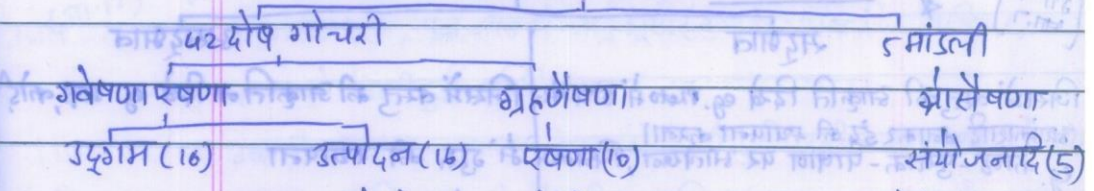 ५२ दोष गोचरी ५ मांडली
गवेषणा एषणा ग्रहणैषणा ग्रासैषणा
उद्गम (16) उत्पादन (16) एषणा (10) संयोजनादि (5)